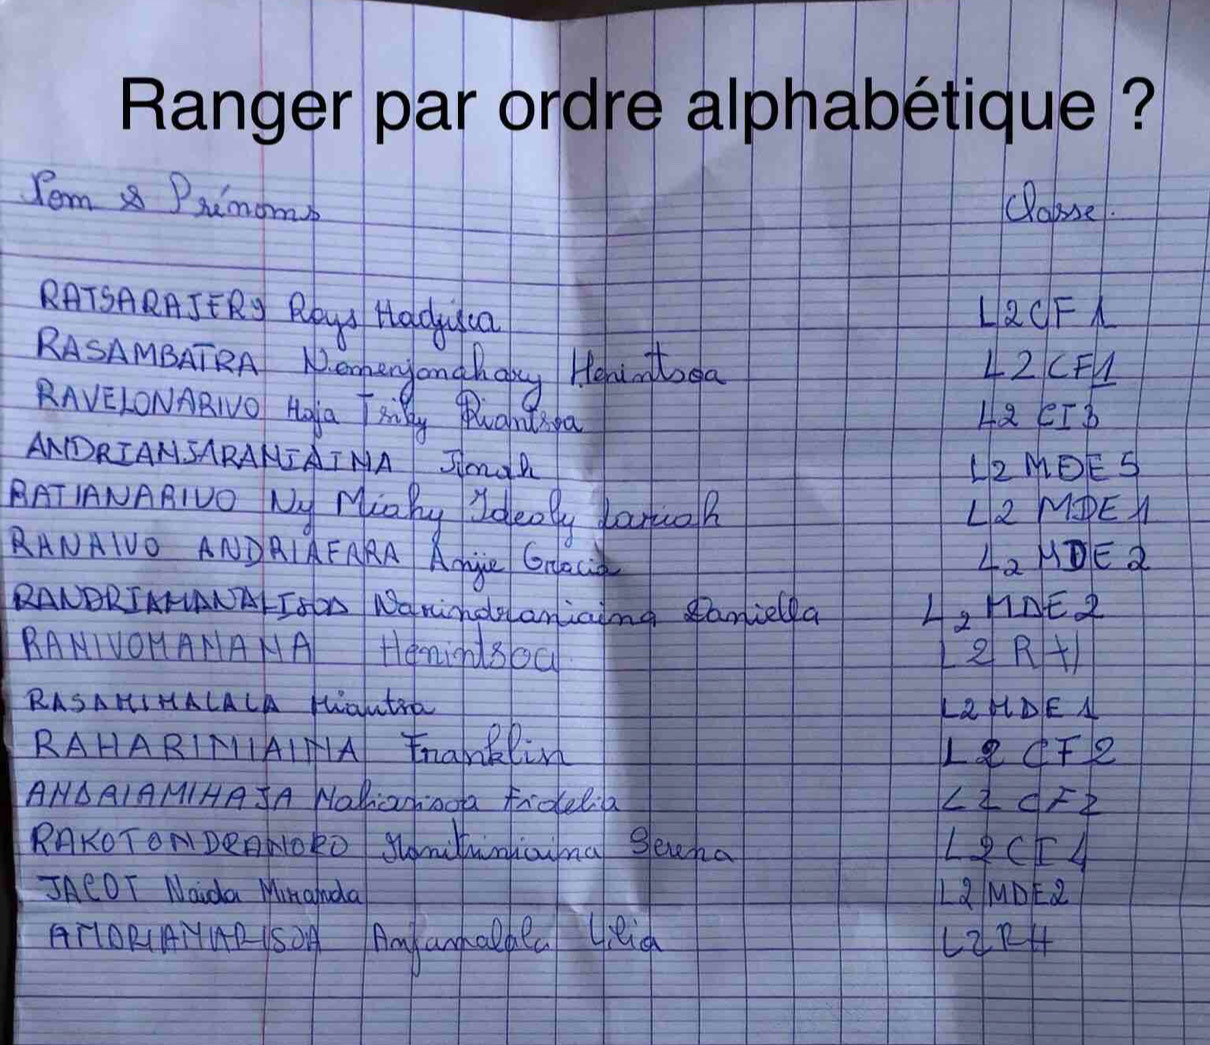 Ranger par ordre alphabétique ?
Nom & Prénoms Classe.
RATSARAJERY Roys Hadjisca L2CF1
RASAMBATRA Nomenjanahary Henintsoa L2CF1
RAVELONARIVO Haja Tsiky Riantsoa L2 CI3
ANDRIANJARANIAINA Jonah L2 MDE5
RATIANARIVO Ny Miahy Idealy L2 MDE1
RANAIVO ANDRIAFARA Angie Gracia L2 MDE2
RANDRIAMANALISOA Narindraniaina Daniella L2 MDE2
RANIVOMANANA Henintsoa L2 RH
RASAMIMALALA Miantsa L2MDE1
RAHARINIAINA Franklin L2 CF2
ANDRIAMIHAJA Fidelia L2 CF2
RAKOTONDRANORO Serena L2CI4
JACOT Naida Miranda L2 MDE2
ANDRIANARISOA Anjamalala Lilia L2RH